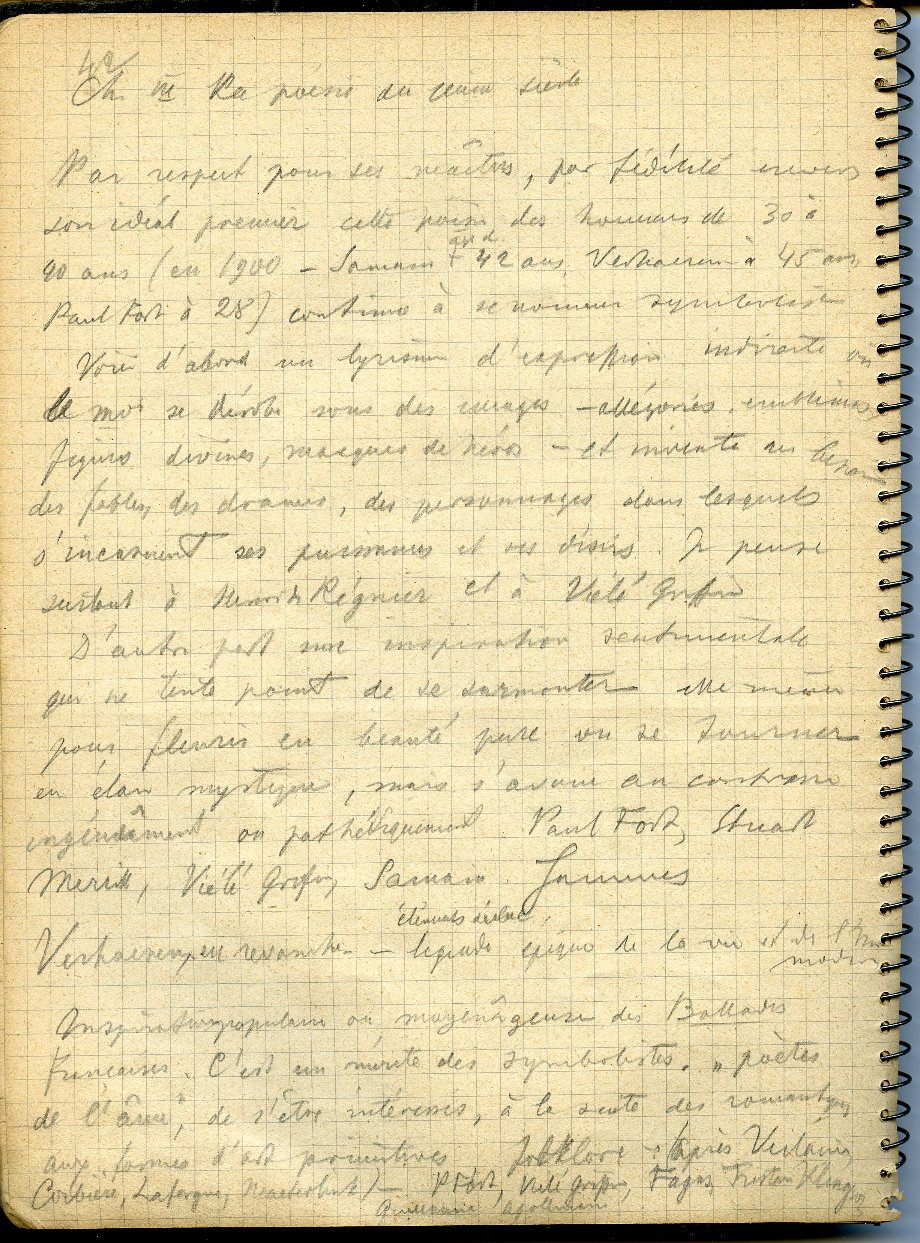 42
Ch. III La poésie du siècle
Par respect pour ses maîtres, par fidélité envers
son idéal premier cette poésie des hommes de 30 à
40 ans (en 1900 – Samain 42 ans, Verhaeren à 45 ans,
Paul Fort à 28) continue à se nommer symboliste
Voici d'abord un lyrisme d'expression indirecte où
le moi se dérobe sous des images – allégories, emblèmes,
figures divines, masques de héros – et invente au besoin
des fables, des drames, des personnages dans lesquels
s'incarnent ses puissances et ses désirs. Je pense
surtout à Henri de Régnier et à Viélé Griffin
D'autre part une inspiration sentimentale
qui ne tente point de se surmonter elle même
pour fleurir en beauté pure ou se tourner
en élan mystique, mais s'avoue au contraire
ingénûment ou pathétiquement Paul Fort, Stuart
Merill, Viélé Griffin, Samain Jammes
éléments
Verhaeren, en revanche – légende épique de la vie et de l'
moderne
Inspiration populaire ou moyenâgeuse des Ballades
françaises. C'est un mérite des symbolistes, "poètes
de l'âme", de s'être intéressés, à la suite des romantiques
aux formes d'art primitives folklore (après Verlaine,
Corbière, Laforgue, Maeterlinck) – P Fort, Viélé Griffin, Fagus, Tristan Klingsor
Guillaume Apollinaire